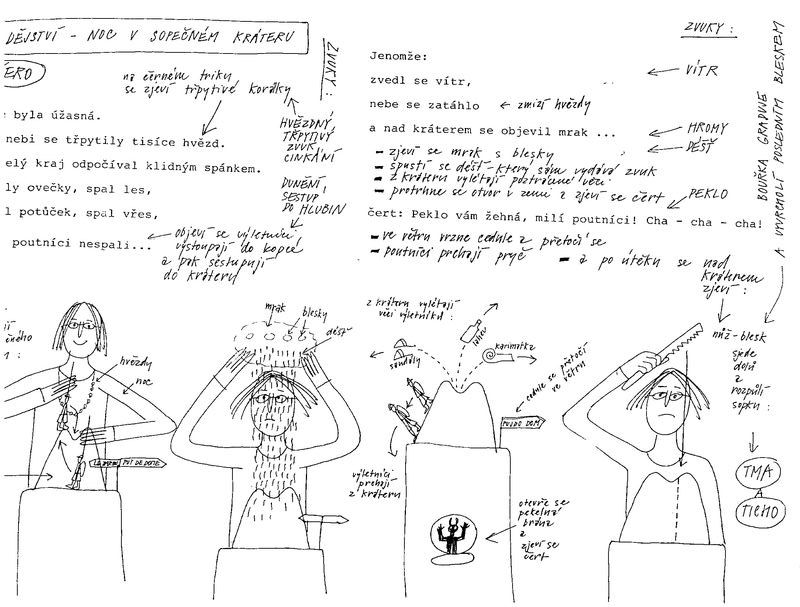 DĚJSTVÍ - NOC V SOPEČNÉM KRÁTERU
ZVUKY:
na černém triku
se zjeví třpytivé korálky
: byla úžasná.
nebi se třpytily tisíce hvězd.
elý kraj odpočíval klidným spánkem.
ly ovečky, spal les,
l potůček, spal vřes,
poutníci nespali...
HVĚZDNÝ
TŘPYTIVÝ
ZVUK
CINKÁNÍ
DUNĚNÍ,
SESTUP
DO HLUBIN
objeví se výletníci
vystoupají do kopce
a pak sestupují
do kráteru
hvězdy
noc
PUY DE DOME
mrak
blesky
déšť
ZVUKY:
Jenomže:
zvedl se vítr,
VÍTR
nebe se zatáhlo
zmizí hvězdy
a nad kráterem se objevil mrak ...
HROMY
DÉŠŤ
- zjeví se mrak s blesky
- spustí se déšť, který sám vydává zvuk
- z kráteru vylétají poztrácené věci
- protrhne se otvor v zemi a zjeví se čert
PEKLO
čert: Peklo vám žehná, milí poutníci! Cha - cha - cha!
- ve větru vrzne cedule a přetočí se
- poutníci prchají pryč
- a po útěku se nad
kráterem
zjeví:
BOUŘKA GRADUJE
A VYVRCHOLÍ POSLEDNÍM BLESKEM
z kráteru vylétají
věci výletníků:
sandály
láhev
karimatka
cedule se přetočí
ve větru
výletníci
prchají
z kráteru
otevře se
pekelná
brána
a
zjeví se
čert
nůž-blesk
sjede
dolů
a
rozpůlí
sopku:
TMA
A
TICHO